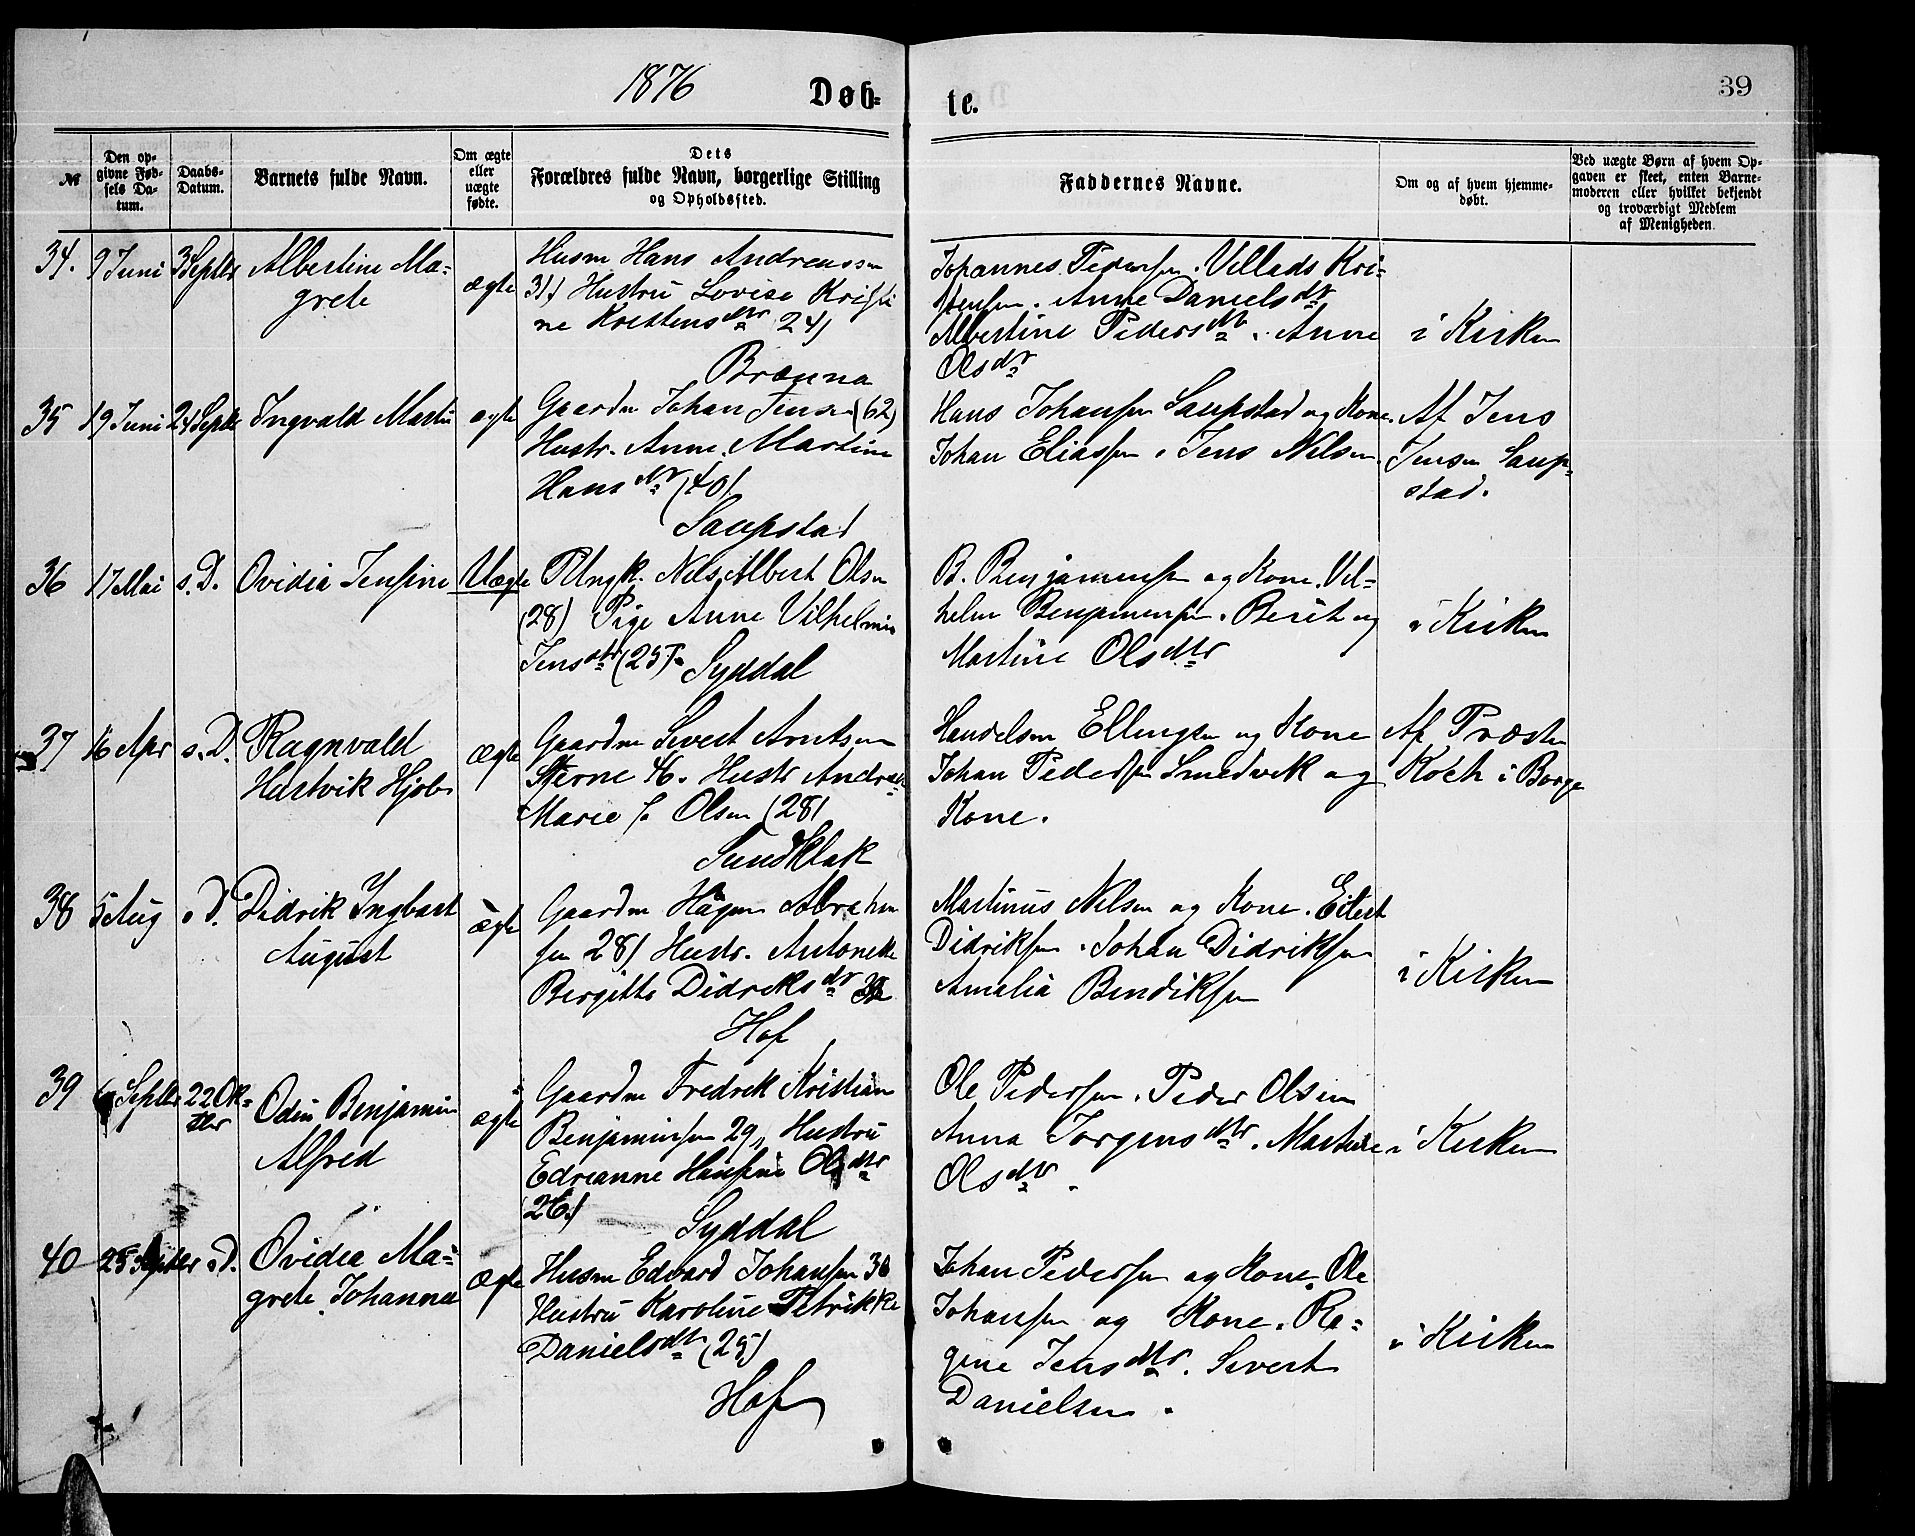 1876
Døb-
te.
39
№
Den op-
givne Fød-
sels Da-
tum.
Daabs-
Datum.
Barnets fulde Navn.
Om ægte
eller
uægte
fødte.
Dets
Forældres fulde Navn, borgerlige Stilling
og Opholdssted.
Faddernes Navne.
Om og af hvem hjemme-
døbt.
Ved uægte Børn af hvem Op-
gaven er skeet, enten Barne-
moderen eller hvilket bekjendt
og troværdigt Medlem
af Menigheden.
34.
9 Juni
3 Septbr
Albertine Ma-
grete
ægte
Husm Hans Andreassen
31) Hustru Lovise Kristi
ne Kristensdtr 24)
Brænna
Johannes Pedersen. Villads Kri-
stensen. Anne Danielsdtr
Albertine Pedersdtr. Anne
Olsdtr
i Kirken
35
19 Juni
24 Septbr
Ingvald Martin
ægte
Gaardm Johan Jensen (62)
Hustr. Anne Martine
Hansdtr (40)
Saupstad
Hans Johansen Saupstad og Kone.
Johan Eliassen. Jens Nilsen.
Af Jens
Jensen Saup-
stad.
36
17 Mai
s. D.
Ovidia Jensine
Uægte
Ungk. Nils Albert Olsen
(28) Pige Anne Vilhelmine
Jensdtr (25).
Syddal
B. Benjaminsen og Kone. Vil-
helm Benjaminsen. Berit og
Martine Olsdtr
i Kirken
37
16 Apr
s. D.
Ragnvald
Hartvik Hjob
ægte
Gaardm Sivert Arntsen
Sterne 46. Hustr Andrea
Marie f. Olsen (28)
Sundklak
Handelsm Ellingsen og Kone
Johan Pedersen Smedvik og
Kone.
Af Præsten
Koch i Borge
38
5 Aug
s. D.
Didrik Ingbart
August
ægte
Gaardm Hågen Abraham
sen 28) Hustr. Antonette
Bergitte Didriksdtr
Hof
Martinus Nilsen og Kone. Eilert
Didriksen. Johan Didriksen
Amalia Bendiksen
i Kirken
39
6 Septbr
22 Ok-
tbr
Odin Benjamin
Alfred
ægte
Gaardm Fredrik Kristian
Benjaminsen 29) Hustru
Edrianne Hansine Olsdtr
(26)
Syddal
Ole Pedersen. Peder Olsen
Anna Jørgensdtr. Martine
Olsdtr.
i Kirken
40
25 Septbr
s. D.
Ovidia Ma-
grete Johanna
ægte
Husm Edvard Johansen 36
Hustru Karoline Petrikke
Danielsdtr (25)
Hof
Johan Pedersen og Kone. Ole
Johansen og Kone. Ra-
gine Jensdtr. Sivert
Danielsen.
i Kirken